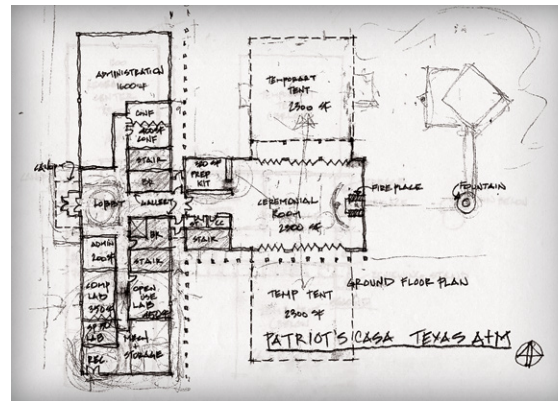 ADMINISTRATION
1600 SF
CONF
400 SF
CONF
STAIR
BR
LOBBY
GALLERY
BR
STAIR
ADMIN
200 SF
COMP
LAB
350 SF
LAB
REC
OPEN
USE
LAB
450 SF
MECH
+
STORAGE
PREP
KIT
STAIR
TEMPORARY
TENT
2300 SF
CEREMONIAL
ROOM
2300 SF
FIREPLACE
FOUNTAIN
TEMP TENT
2300 SF
GROUND FLOOR PLAN
PATRIOT'S CASA TEXAS A+M